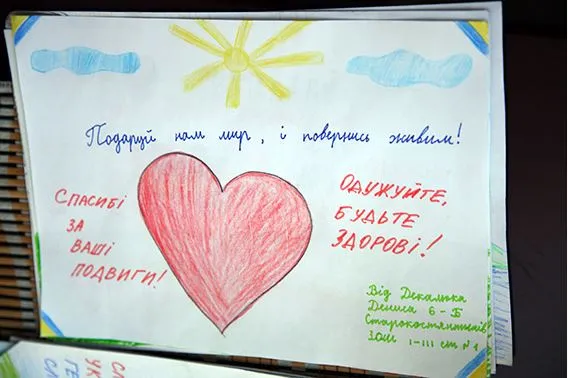 Подаруй нам мир, і повернись живим!
Спасибі
за
ваші
подвиги!
Одужуйте,
будьте
здорові!
Від Декалюка
Дениса 6-Б
Старокостянтинів
ЗОШ I-III ст №1